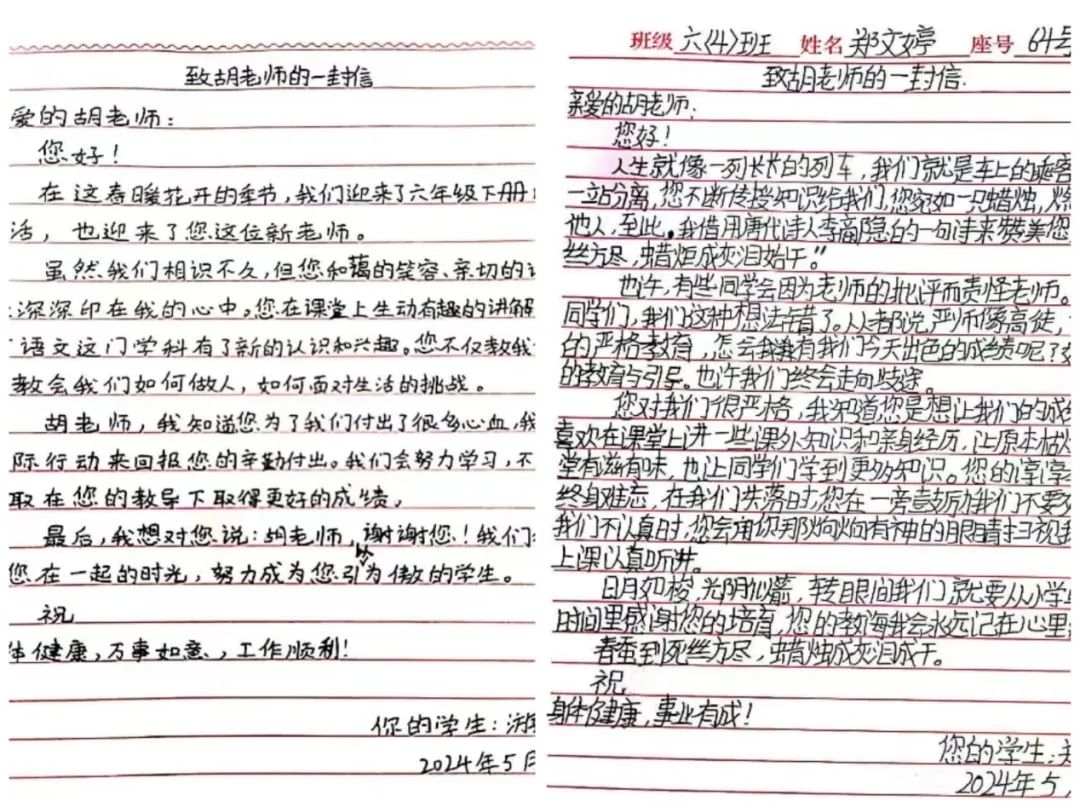 致胡老师的一封信
爱的胡老师:
您好!
在这春暖花开的季节,我们迎来了六年级下册
活,也迎来了您这位新老师。
虽然我们相识不久,但您和蔼的笑容、亲切的
深深印在我的心中。您在课堂上生动有趣的讲解
语文这门学科有了新的认识和兴趣。您不仅教我
教会我们如何做人,如何面对生活的挑战。
胡老师,我知道您为了我们付出了很多心血,我
际行动来回报您的辛勤付出。我们会努力学习,不
取在您的教导下取得更好的成绩,
最后,我想对您说:胡老师,谢谢您!我们
您在一起的时光,努力成为您引以为傲的学生。
祝
体健康,万事如意、,工作顺利!
你的学生:游
2024年5月
班级 六(4)班 姓名 郑文婷 座号 64号
致胡老师的一封信.
亲爱的胡老师:
您好!
人生就像一列长长的列车,我们就是车上的乘客
一站分离,您不断传授知识给我们,您宛如一只蜡烛,燃
他人,至此。我借用唐代诗人李商隐的一句诗来赞美您
丝方尽,蜡炬成灰泪始干。"
也许,有些同学会因为老师的批评而责怪老师。
同学们,我们这种想法错了。人都说,严师出高徒,
的严格教育,怎会有我们今天出色的成绩呢?
的教育与引导。也许我们终会走向歧途。
您对我们很严格,我知道您是想让我们的成绩
喜欢在课堂上讲一些课外知识和亲身经历,让原本枯燥
堂有滋有味,也让同学们学到更多知识。您的谆谆
终身难忘,在我们失落时,您在一旁鼓励我们不要
我们不认真时,您会用您那炯炯有神的眼睛扫视我
上课认真听讲。
日月如梭,光阴似箭,转眼间我们就要从小学
时间里感谢您的培育,您的教诲我会永远记在心里
春蚕到死丝方尽,蜡烛成灰泪成干。
祝
身体健康,事业有成!
您的学生:郑
2024年5